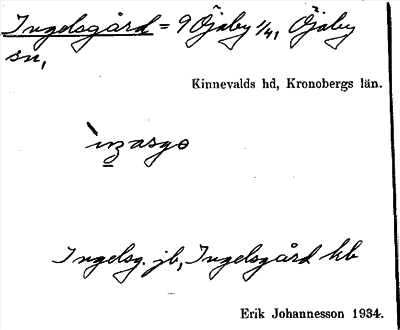 Ingelsgård = 9 Öjaby 1/4, Öjaby
sn,
Kinnevalds hd, Kronobergs län.
Ingelsg. jb, Ingelsgård hb
Erik Johannesson 1934.